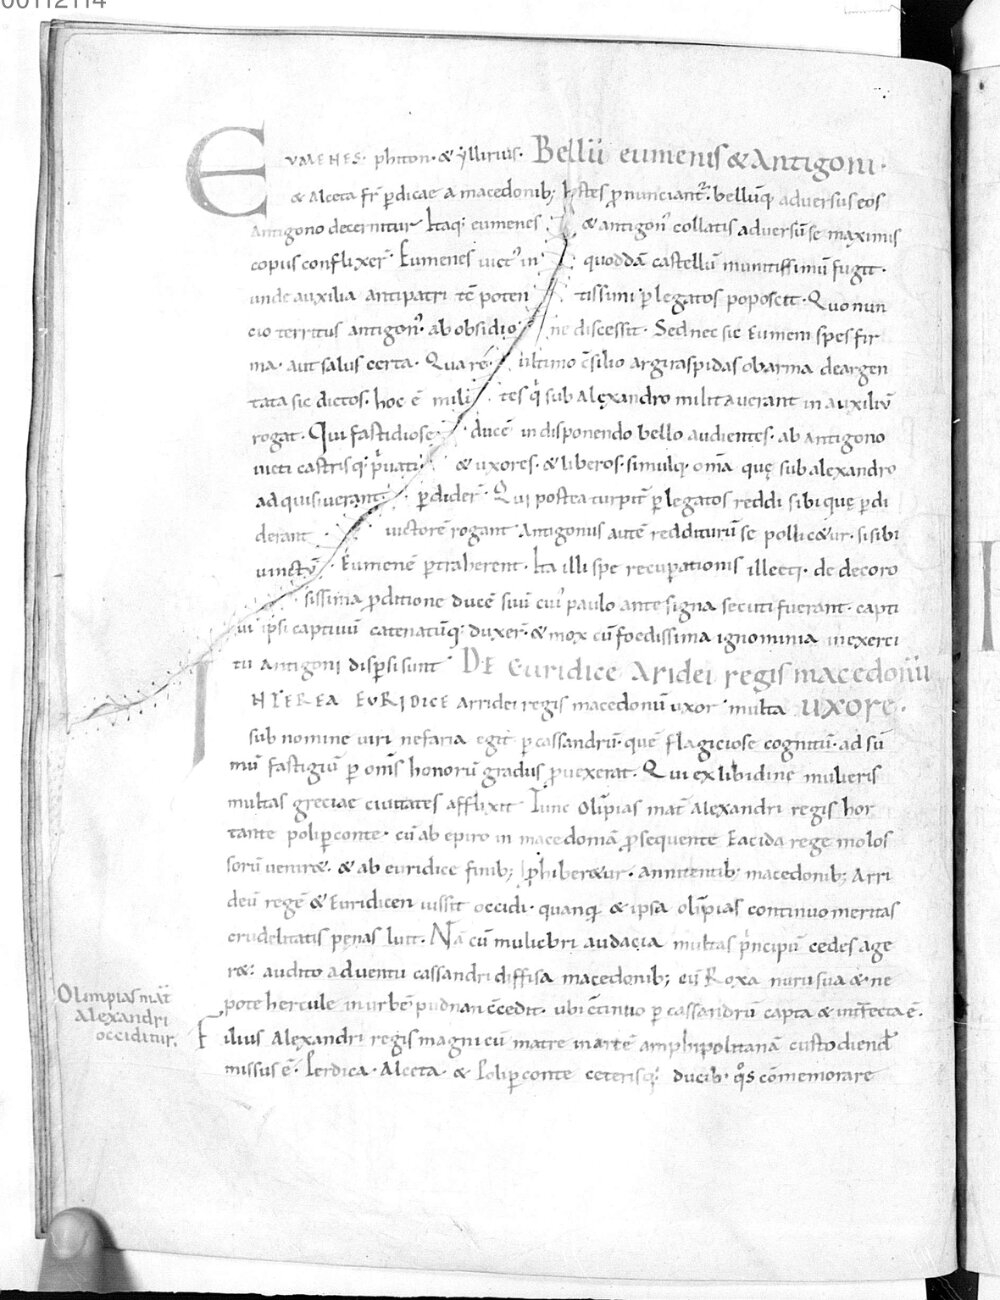 00112114
EVMENES· phiton· & yllirius· Bellū eumenis & Antigoni·
& Alceta fr̄ p̄dicae a macedonib; hostes p̄nunciant᷑· bellūq; adversus eos
Antigono decernitur Itaq; eumenes & antigon᷒ collatis adversū se maximis
copiis conflixer̄· Eumenes vict᷒ in quoddā castellū munitissimū fugit·
unde auxilia antipatri tc̄ poten tissimi p̄ legatos poposcit· Quo nun
cio territus antigon᷒· ab obsidio ne discessit· Sed nec sic Eumeni spes fir
ma· aut salus certa· Qua rē· ultimo c̄silio argiraspidas ob arma deargen
tata sic dictos· hoc ē mili tes q̄ sub Alexandro militaverant in auxiliū
rogat· Qui fastidiose ducē in disponendo bello audientes· ab Antigono
victi castrisq; p̄vati & uxores· & liberos· simulq; om̄a quę sub alexandro
adquisiverant p̄dider̄· Qui postea turpit̄ p̄ legatos reddi sibi quę p̄di
derant victorē rogant Antigonus autē redditurū se pollic&ur· si sibi
vinctū Eumenē p̄traherent· Ita illi spe recuperationis illecti· de decoro
sissima p̄ditione ducē suū cui᷒ paulo ante signa secuti fuerant· capti
vi ipsi captivū catenatūq; duxer̄· & mox cū foedissima ignominia in exerci
tū Antigoni disp̄si sunt DE Euridice Aridei regis macedonū
INTEREA EURIDICE Arridei regis macedonū uxor multa uxore·
sub nomine viri nefaria egit p̄ cassandrū· quē flagiciose cognitū· ad sū
mū fastigiū p̄ om̄s honorū gradus p̄vexerat· Qui ex libidine mulieris
multas greciae civitates afflixit Tunc olīpias mat̄ Alexandri regis hor
tante polip̄conte· cū ab epiro in macedoniā p̄sequente Eacida rege molos
sorū venir&· & ab euridice finib; p̄hiber&ur· annitentib; macedonib; Arri
deū regē & Euridicen iussit occidi· quanq; & ipsa olīpias continuo meritas
crudelitatis penas luit· Nā cū muliebri audacia multas p̄ncipū cedes age
r&· audito adventu cassandri diffisa macedonib; cū Roxa nuru sua & ne
pote hercule in urbē pidnan c̄cedit· ubi c̄tinuo p̄ cassandrū capta & int̄fecta ē·
Olimpias mat̄
Alexandri
occiditur·
Filius Alexandri regis magni cū matre in artē amphipolitanā custodiend᷒
missus ē· Perdica· Alceta· & Polip̄conte ceterisq; ducib· q̄s cōmemorare